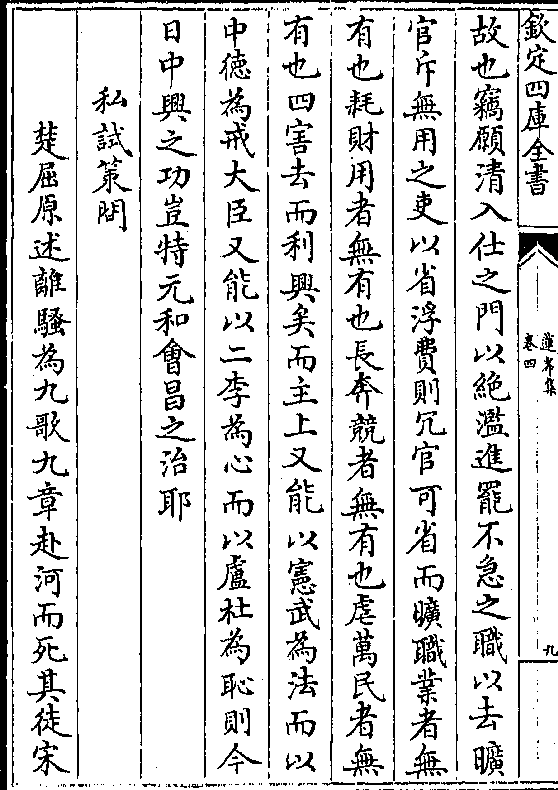 欽定四庫全書
蓮峯集
卷四
九
故也竊願清入仕之門以絶濫進罷不急之職以去曠
官斥無用之吏以省浮費則冗官可省而曠職業者無
有也耗財用者無有也長奔競者無有也虐萬民者無
有也四害去而利興矣而主上又能以憲武為法而以
中徳為戒大臣又能以二李為心而以盧杜為恥則今
日中興之功豈特元和會昌之治耶
私試策問
楚屈原述離騷為九歌九章赴河而死其徒宋